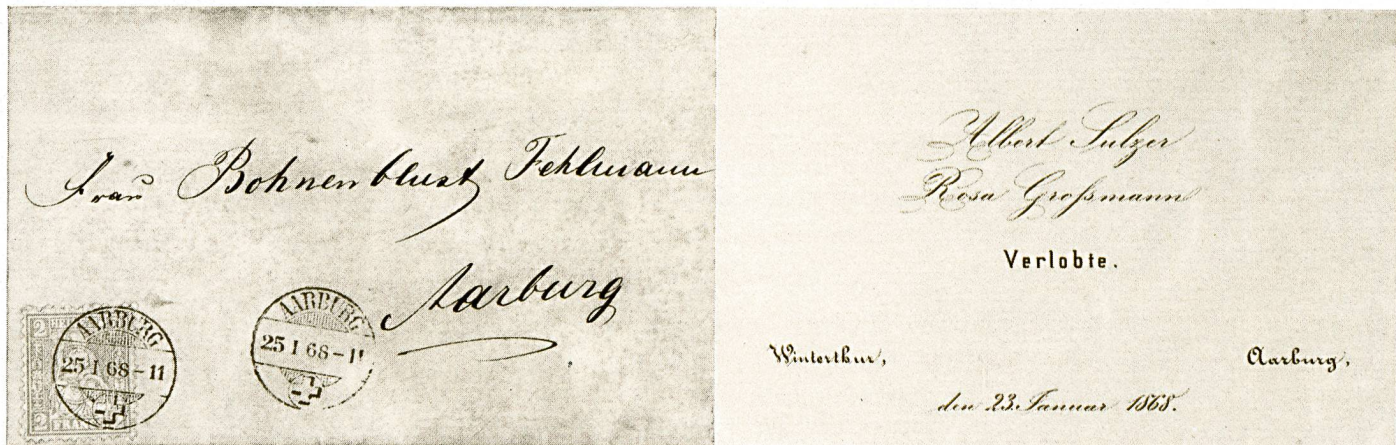 Frau Bohnenblust Fehlmann
Aarburg
AARBURG
25 I 68-11
AARBURG
25 I 68-11
2 2
2 FRANCO 2
Albert Sulzer
Rosa Großmann
Verlobte.
Winterthur, Aarburg,
den 23. Januar 1868.